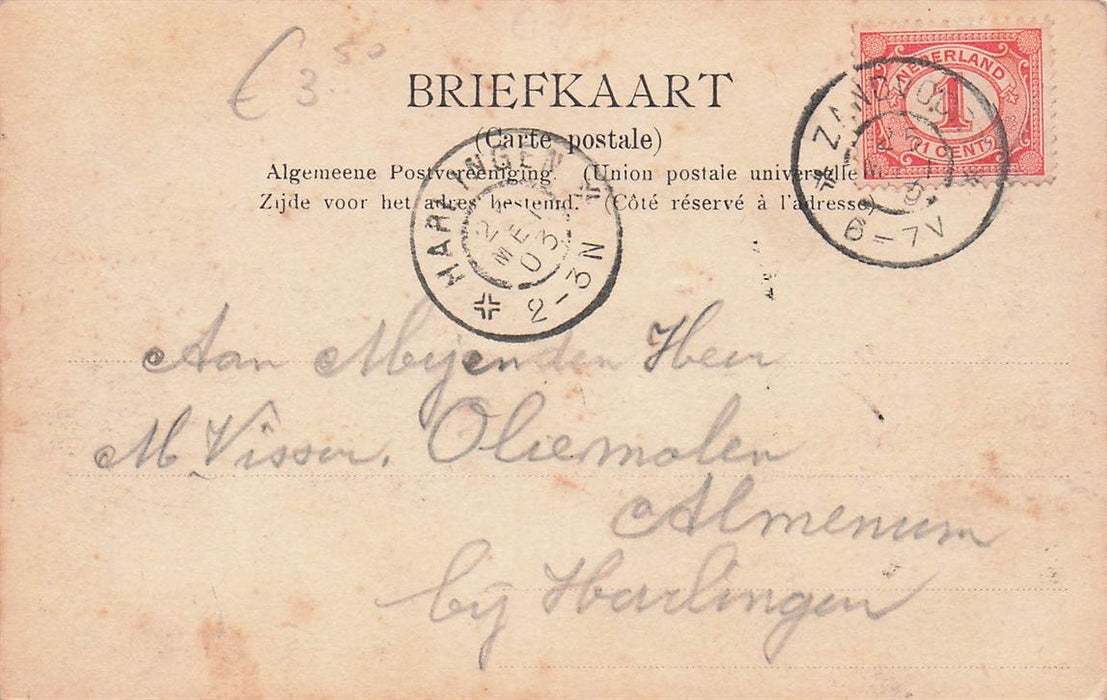 € 3.50
BRIEFKAART
(Carte postale)
Algemeene Postvereeniging. (Union postale universelle
Zijde voor het adres bestemd. (Côté réservé à l'adresse
NEDERLAND
1
1 CENT
ZANDVOORT
6-7V
HARLINGEN
MEI
03
2-3N
Aan Mijn den Heer
M Visser. Oliemolen
Almenum
bij Harlingen